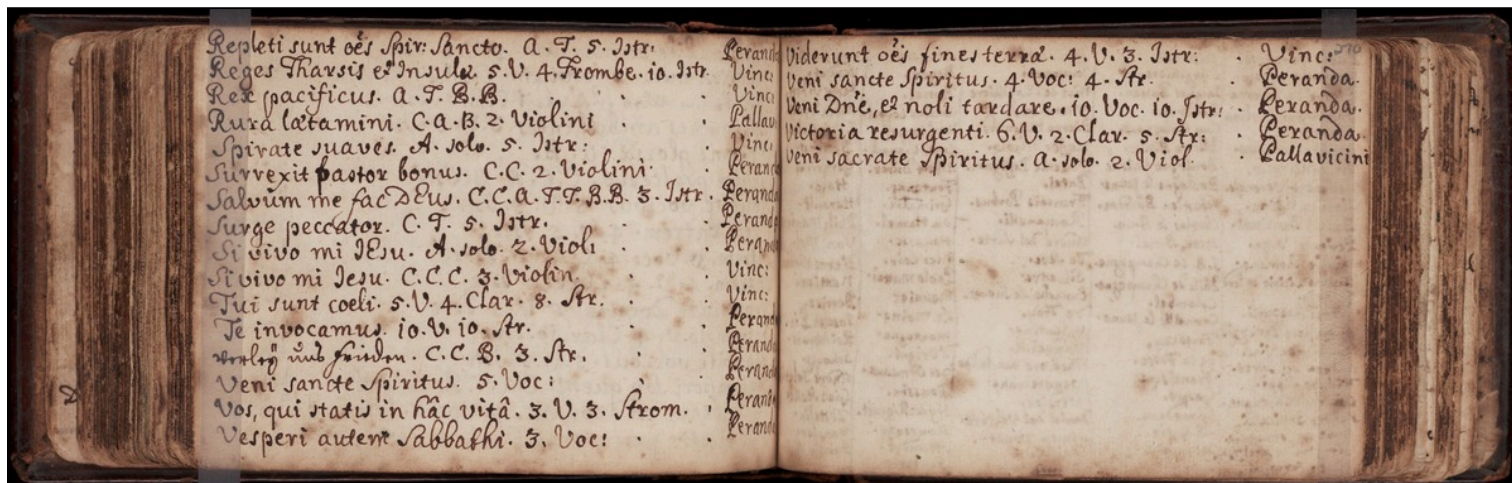 Repleti sunt oe͂s Spir: Sancto. A. T. 5. Istr: Perand
Reges Tharsis et Insulæ 5. V. 4. Trombe. 10. Istr. Vinc:
Rex pacificus. A. T. B. B. Vinc:
Rura lætamini. C. A. B. 2. Violini Pallav
Spirate suaves. A. solo. 5. Istr: Vinc:
Surrexit pastor bonus. C. C. 2. Violini. Perand
Salvum me fac DEus. C. C. A. T. T. B. B. 3. Istr. Peranda
Surge peccator. C. T. 5. Istr. Peranda
Si vivo mi JEsu. A. solo. 2. Violi Peran
Si vivo mi Jesu. C. C. C. 3. Violin. Vinc:
Tui sunt coeli. 5. V. 4. Clar. 8. Str. Vinc:
Te invocamus. 10. V. 10. Str. Perand
Verleÿ uns frieden. C. C. B. 3. Str. Peranda
Veni sancte Spiritus. 5. Voc: Perand
Vos, qui statis in hâc vitâ. 3. V. 3. Strom. Perand
Vesperi autem Sabbathi. 3. Voc: Peranda
Viderunt oe͂s fines terræ. 4. V. 3. Istr: Vinc:
Veni sancte Spiritus. 4. Voc: 4. Str. Peranda.
Veni Dn͂e, et noli tardare. 10. Voc. 10. Istr: Peranda.
Victoria resurgenti. 6. V. 2. Clar. 5. Str: Peranda.
Veni sacrate Spiritus. A. solo. 2. Viol. Pallavicini